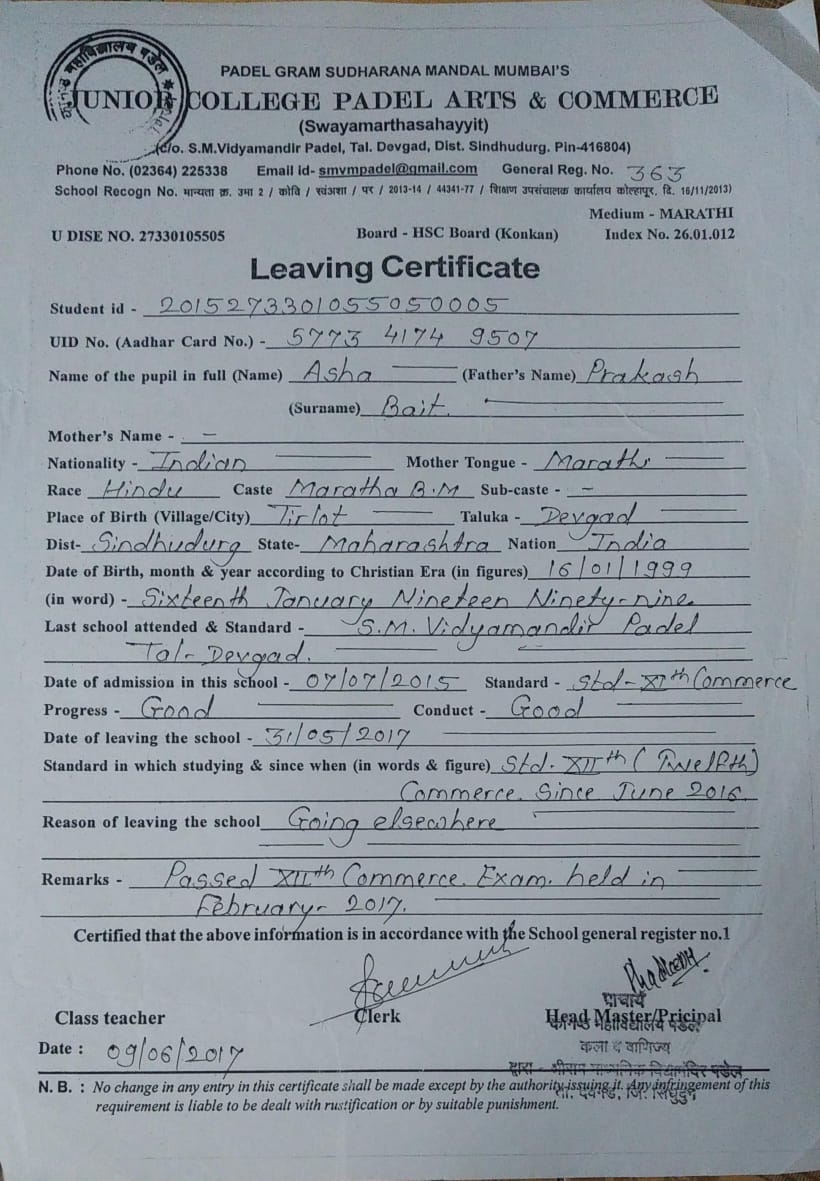 कनिष्ठ महाविद्यालय पडेल
PADEL GRAM SUDHARANA MANDAL MUMBAI'S
JUNIOR COLLEGE PADEL ARTS & COMMERCE
(Swayamarthasahayyit)
(c/o. S.M.Vidyamandir Padel, Tal. Devgad, Dist. Sindhudurg. Pin-416804)
Phone No. (02364) 225338 Email Id- smvmpadel@gmail.com General Reg. No. 363
School Recogn No. मान्यता क्र. उमा 2 / कोवि / स्वंअशा / पर / 2013-14 / 44341-77 / शिक्षण उपसंचालक कार्यालय कोल्हापूर, दि. 16/11/2013)
Medium - MARATHI
U DISE NO. 27330105505 Board - HSC Board (Konkan) Index No. 26.01.012
Leaving Certificate
Student id - 2015273301055050005
UID No. (Aadhar Card No.) - 5773 4174 9507
Name of the pupil in full (Name) Asha (Father's Name) Prakash
(Surname) Bait.
Mother's Name - -
Nationality - Indian Mother Tongue - Marathi
Race Hindu Caste Maratha B.M Sub-caste - -
Place of Birth (Village/City) Tirlot Taluka - Devgad
Dist- Sindhudurg State- Maharashtra Nation India
Date of Birth, month & year according to Christian Era (in figures) 16/01/1999
(in word) - Sixteenth January Nineteen Ninety-nine
Last school attended & Standard - S.M. Vidyamandir Padel
Tal- Devgad.
Date of admission in this school - 07/07/2015 Standard - Std-XIth Commerce
Progress - Good Conduct - Good
Date of leaving the school - 31/05/2017
Standard in which studying & since when (in words & figure) Std. XIIth (Twelfth)
Commerce. Since June 2016.
Reason of leaving the school Going elsewhere
Remarks - Passed XIIth Commerce. Exam. held in
February- 2017.
Certified that the above information is in accordance with the School general register no.1
प्राचार्य
Class teacher Clerk Head Master/Pricipal
कनिष्ठ महाविद्यालय पडेल
Date : 09/06/2017 कला व वाणिज्य
द्वारा - श्रीराम माध्यमिक विद्यामंदिर पडेल
N. B. : No change in any entry in this certificate shall be made except by the authority issuing it. Any infringement of this
ता. देवगड, जि. सिंधुदुर्ग
requirement is liable to be dealt with rustification or by suitable punishment.